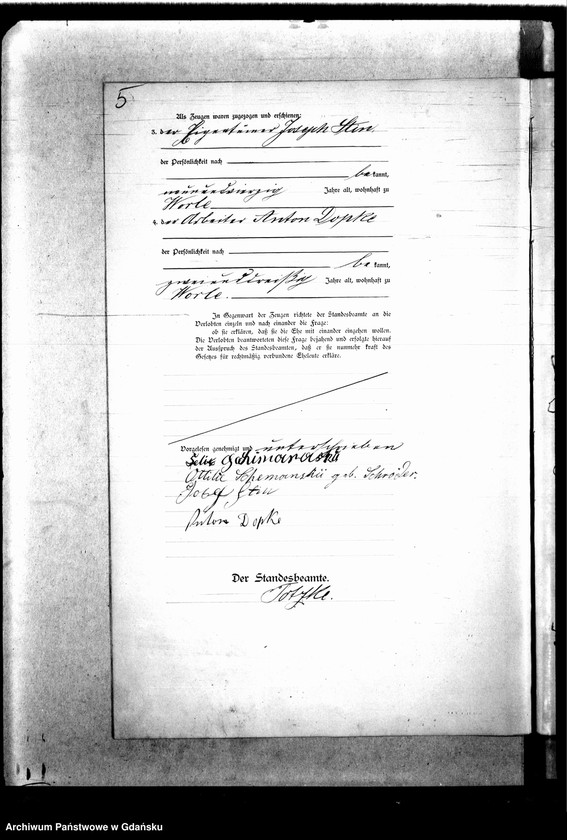 5
Als Zeugen waren zugezogen und erschienen:
3. der Eigentümer Joseph Sten
der Persönlichkeit nach
be kannt,
neunundvierzig Jahre alt, wohnhaft zu
Worle
4. der Arbeiter Anton Dopke
der Persönlichkeit nach
be kannt,
zweiunddreißig Jahre alt, wohnhaft zu
Worle.
In Gegenwart der Zeugen richtete der Standesbeamte an die
Verlobten einzeln und nach einander die Frage:
ob sie erklären, daß sie die Ehe mit einander eingehen wollen.
Die Verlobten beantworteten diese Frage bejahend und erfolgte hierauf
der Ausspruch des Standesbeamten, daß er sie nunmehr kraft des
Gesetzes für rechtmäßig verbundene Eheleute erkläre.
Vorgelesen genehmigt und unterschrieben
Felix
Ottilie geb. Schröder.
Josef Sten
Anton Dopke
Der Standesbeamte.
Totzke.
Archiwum Państwowe w Gdańsku